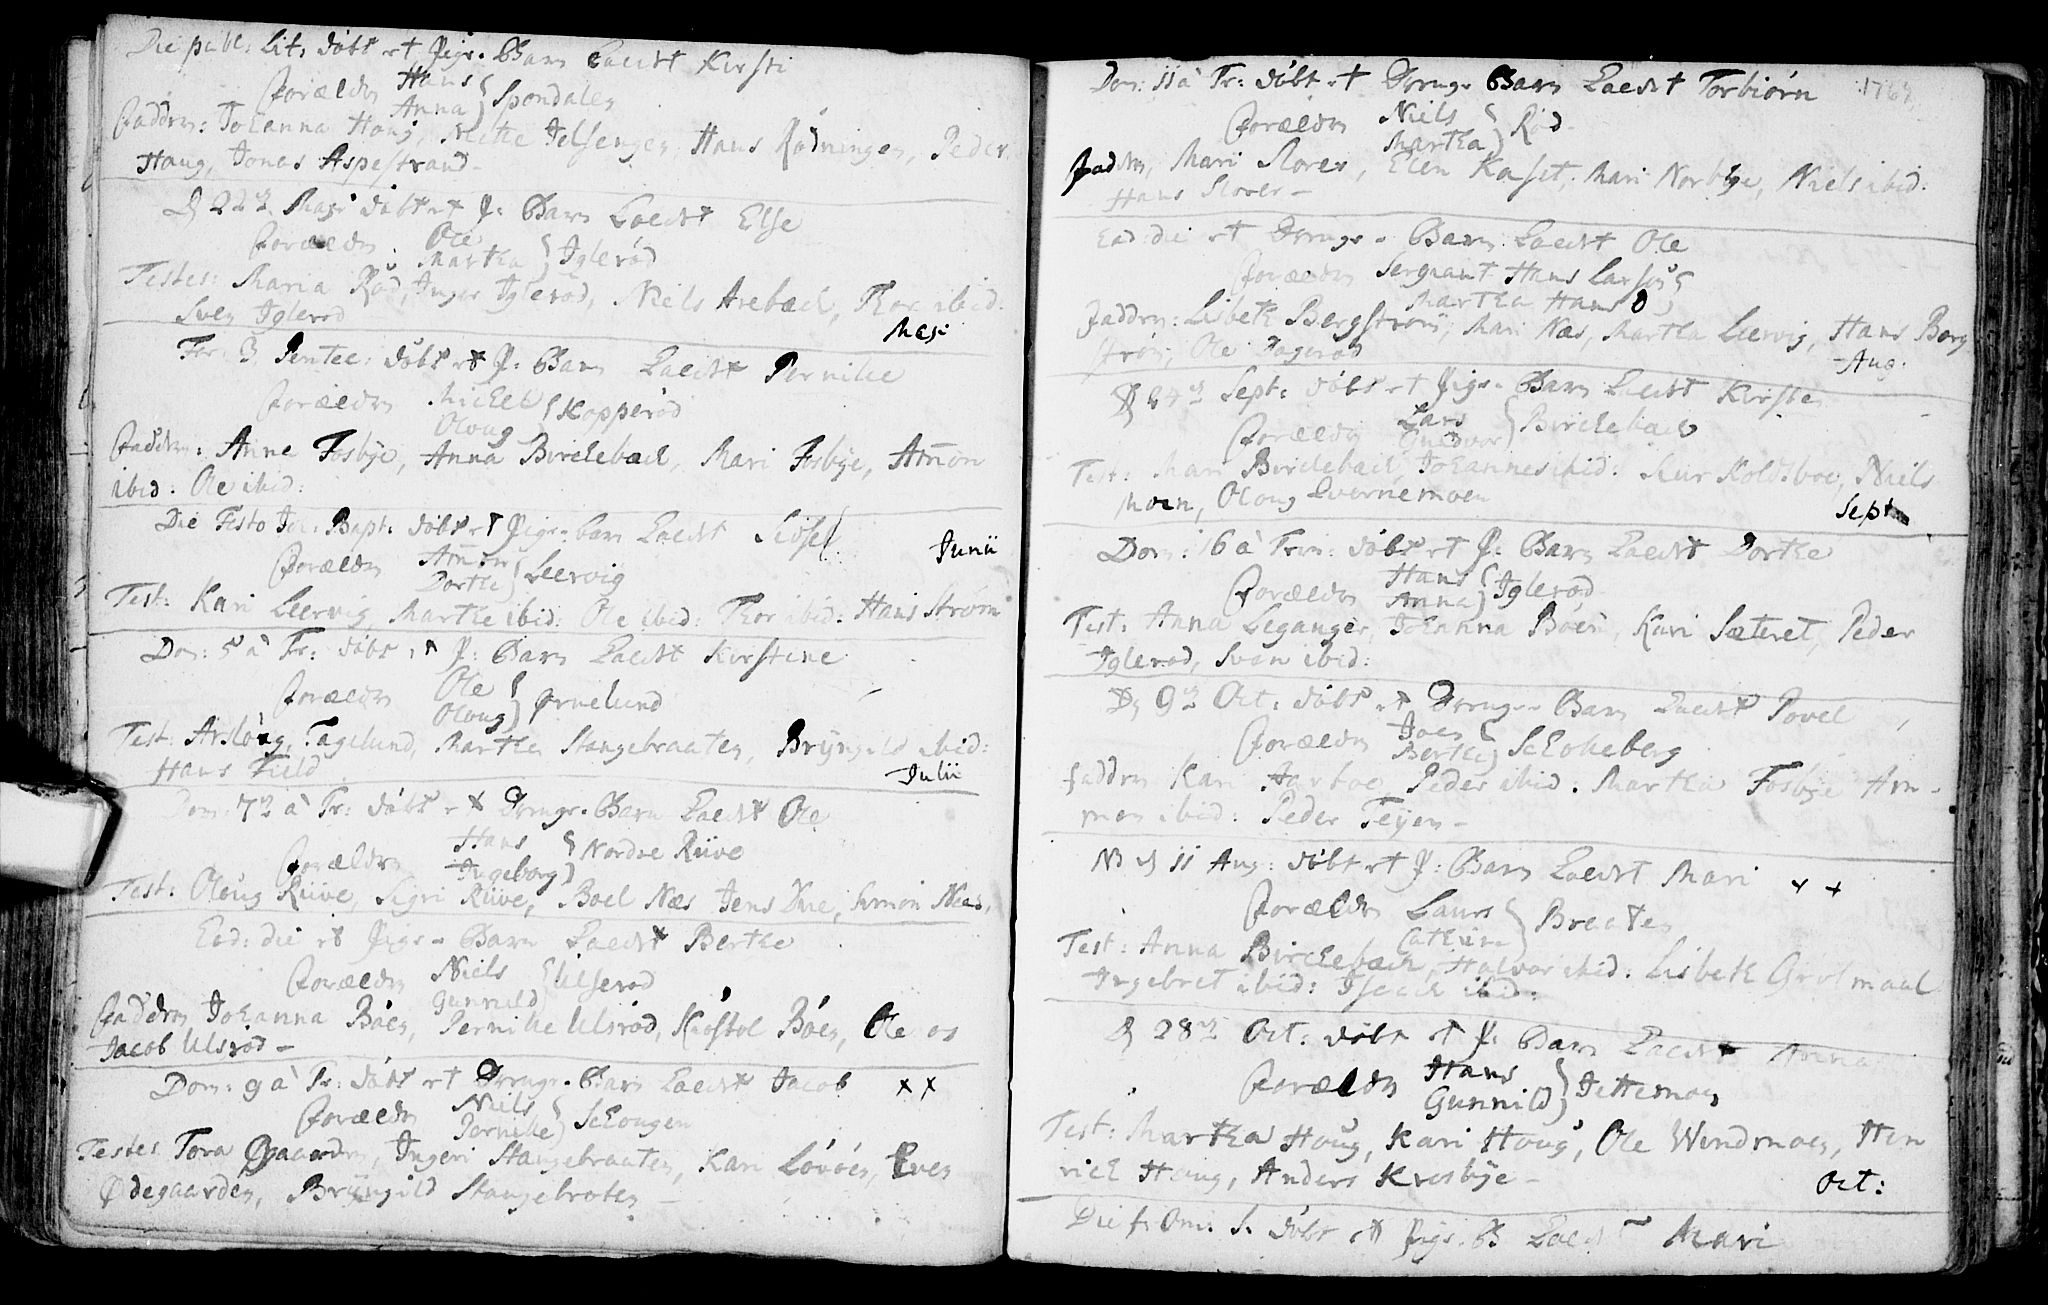 Die publ: Lit: døbt et Pige-Barn kaldt Kirsti
Forældre Hans Anna } Spondalen
Faddere: Johanna Houg, Hans Rødningen, Peder
Haug, Jonas Aspestrand-
D 22de Maji døbt et P: Barn kaldt Else
Forældre Ole Martha } Iglerød
Testes: Maria Rød, Inger Iglerød, Niels Arebæch, Thor ibid:
Sven Iglerød
Maji
Fer: 3 Pentec: døbt et P: Barn kaldt Pernille
Forældre Michel Oloug } Kopperød
Faddere: Anne Fosbye, Anna Birchebæch, Mari Fosbye, Amon
ibid. Ole ibid:
Die Festo Joh: Bapt: døbt et Pige-barn kaldt Sidsel
Junii
Forældre Amon Dorthe } Leervig
Test: Kari Leervig, Marthe ibid: Ole ibid: Thor ibid: Hans Strøm
Dom: 5 à Tr: døbt et P: Barn kaldt Kirstine
Forældre Ole Oloug } Ørnelund
Test: Arsloug Fagelund, Martha Stangebraaten, Bryngild ibid:
Hans Field
Julii
Dom: 7de à Tr: døbt et Drenge-Barn kaldt Ole
Forældre Hans Ingeborg } Nordre Riive
Test: Oloug Riive, Sigri Riive, Boel Næs Jens Riive, Simon Næs,
Eod: die et Pige-Barn kaldt Berthe
Forældre Niels Gunnild } Ulserød
Faddere Johanna Bøen, Pernille Ulsrød, Kiøstol Bøen, Ole og
Jacob Ulsrød-
Dom: 9 à Tr: døbt et Drenge-Barn kaldt Jacob x x
Forældre Niels Pernille } Schougen
Testes Tora Øgaarden, Ingeri Stangebraaten, Kari Løvøen, Even
Ødegaarden, Bryngild Stangebroten-
Dom: 11 à Tr: døbt et Drenge-Barn kaldt Torbiørn 1763
Forældre Niels Martha } Rød
Faddere, Mari Slorer, Elen Kaset, Mari Norbye, Niels ibid:
Hans Slorer-
Eod: die et Drenge-Barn kaldt Ole
Forældre Sergiant Hans Larsøn Martha Hans D }
Faddere: Lisbeth Bergstrøm, Mari Næs, Martha Leervig, Hans Berg
strøm, Ole Dagerød
Aug:
D 24de Sept: døbt et Pige-Barn kaldt Kirsten
Forældre Lars Guldvor } Birchebæch
Test: Mari Birchebæch, Johannes ibid: Niels
Moen, Oloug Qvernemoen
Sept
Dom: 16 à Trin: døbt et P: Barn kaldt Dorthe
Forældre Hans Anna } Iglerød
Test: Anna Leganger, Johanna Bøen, Kari Sæteret, Peder
Iglerød, Sven ibid:
D 9de Oct: døbt et Drenge-Barn kaldt Povel
Forældre Joen Berthe } Scholleberg
Faddere Kari Aarboe, Peder ibid. Martha Fosbye Am-
mon ibid: Peder Teyen-
NB d 11 Aug: døbt et P: Barn kaldt Mari x x
Forældre Laurs Cathrine } Braaten
Test: Anna Birchebæch, Halvor ibid: Lisbeth Grotmaal
Ingebret ibid: Isaach ibid:
D 28de Oct: døbt et P: Barn kaldt Anna
Forældre Hans Gunnild } Jettemoen
Test: Martha Houg, Kari Houg, Ole Windmoen, Hen
rich Houg, Anders Krosbye-
Oct:
Die f. Om: S: døbt et Pige-B kaldt Mari